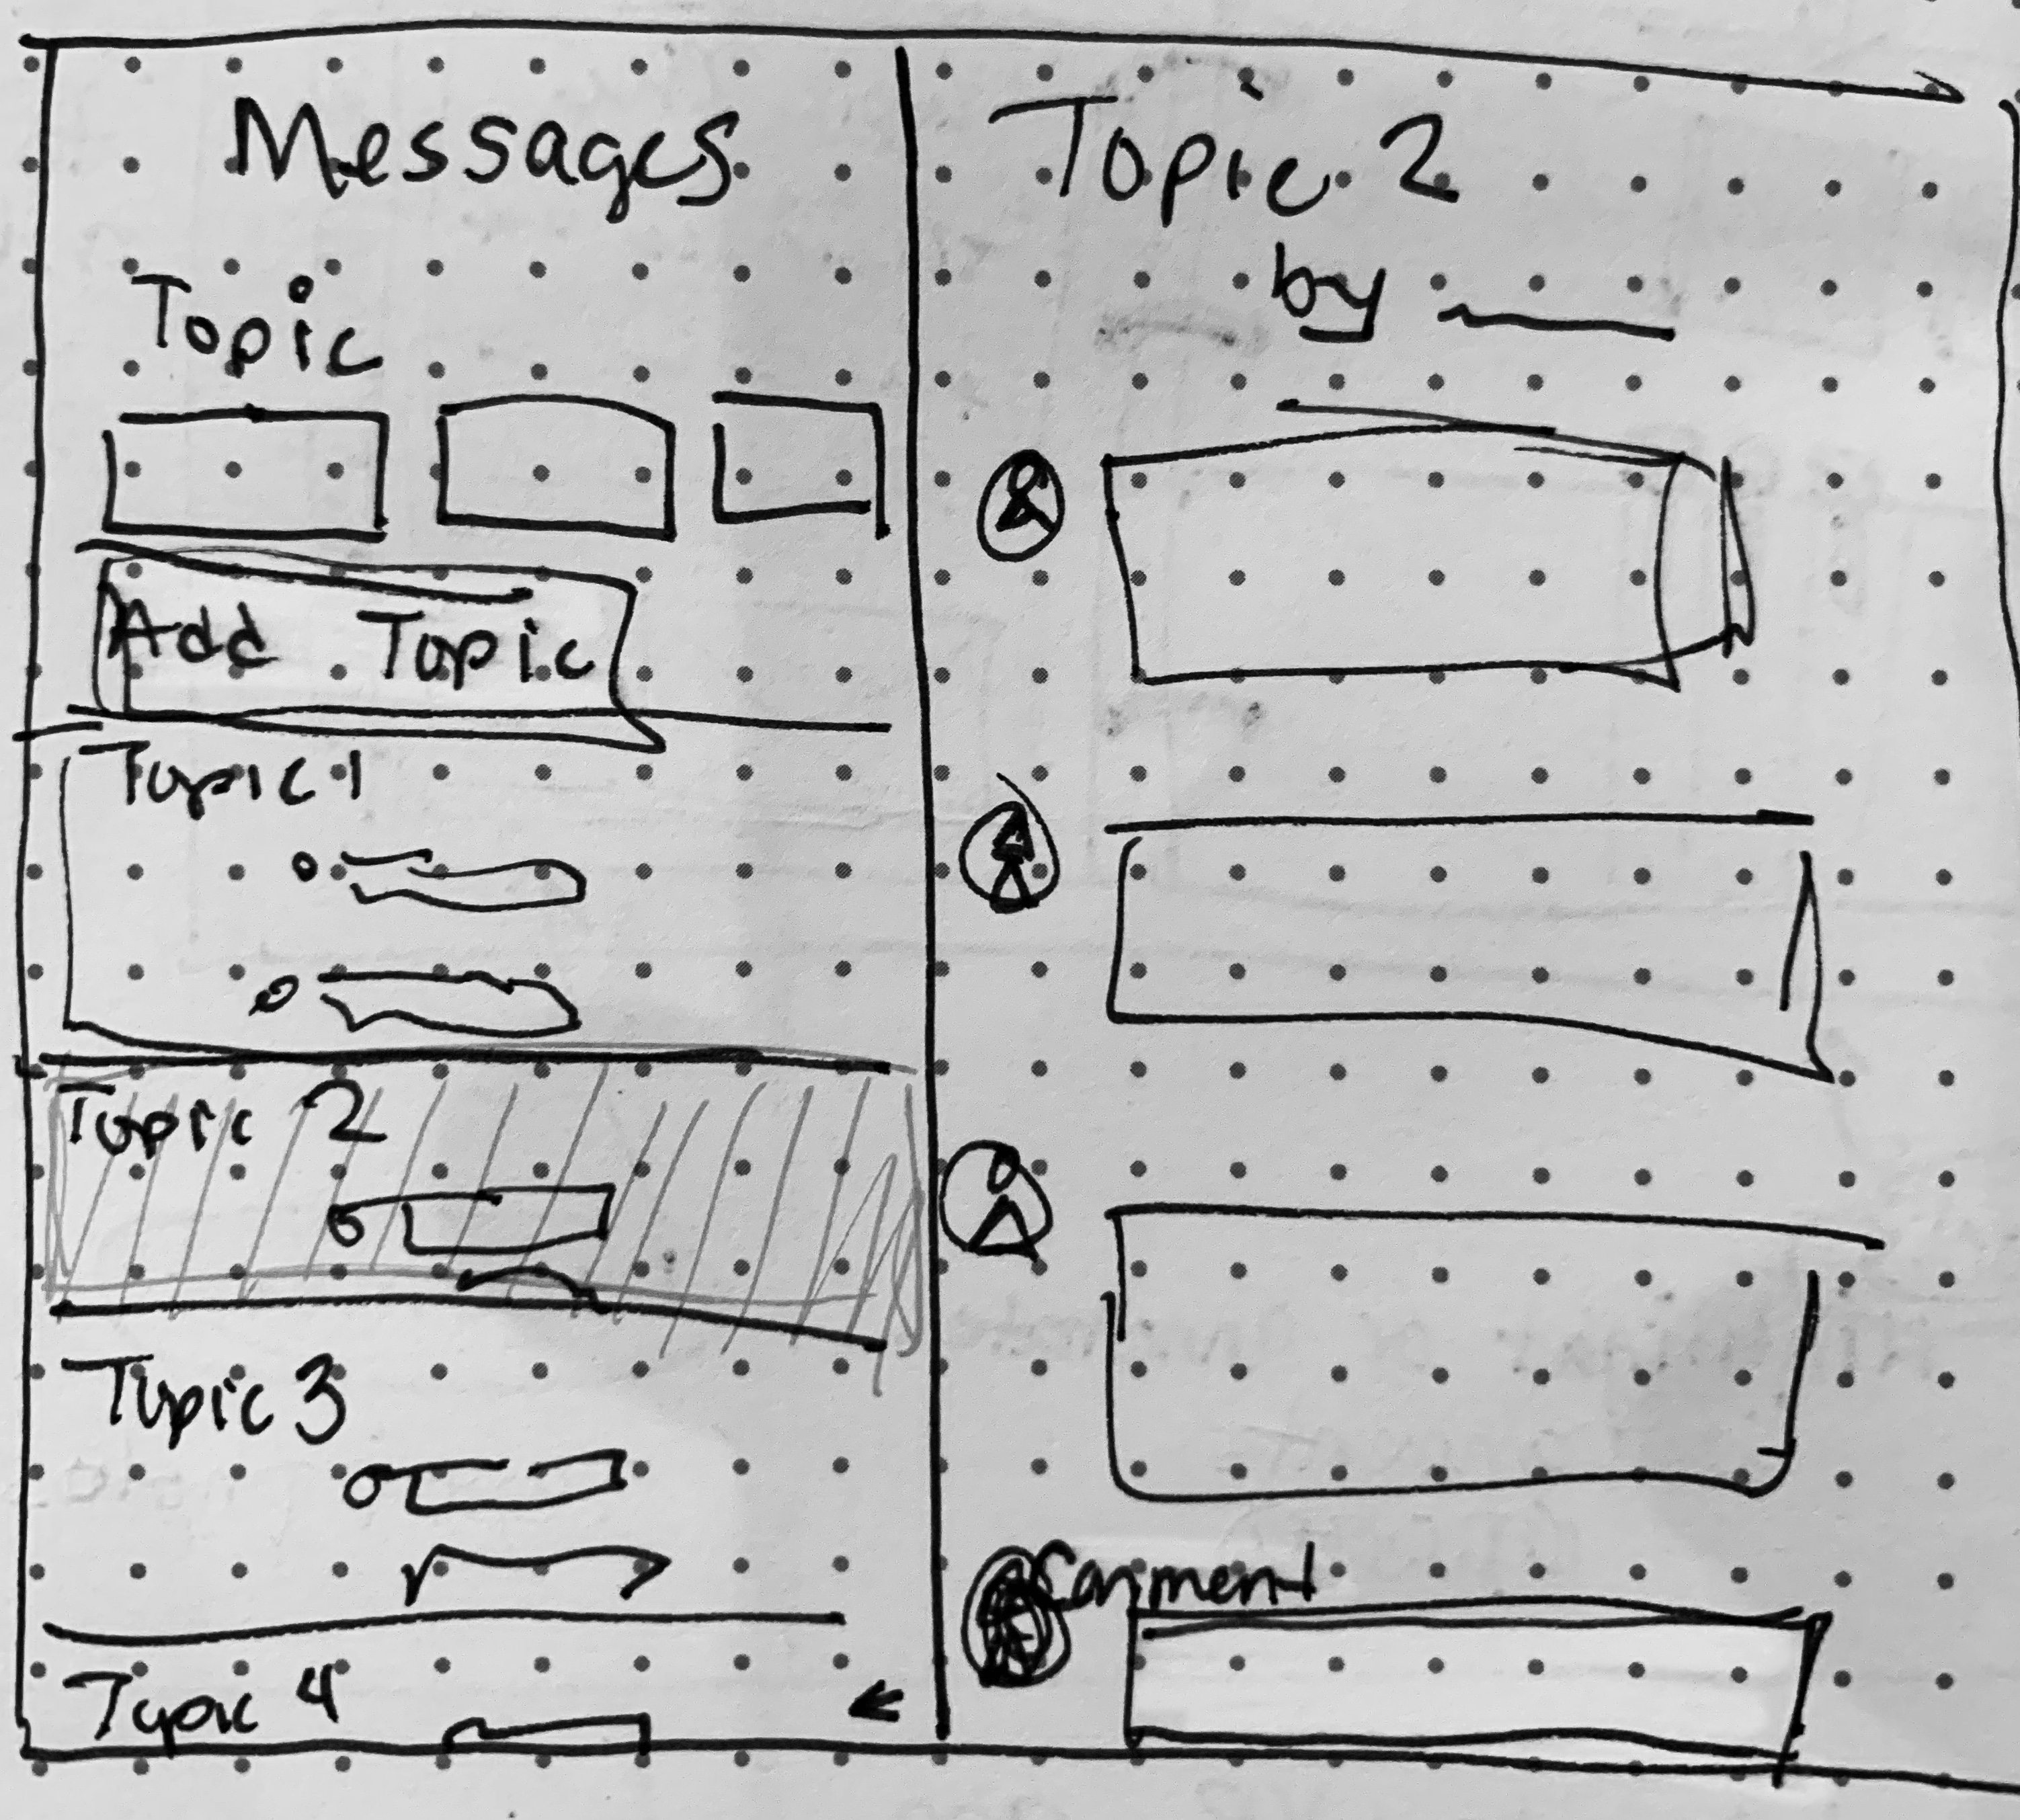 Messages
Topic
Add Topic
Topic 1
Topic 2
Topic 3
Topic 4
Topic 2
by
Comment